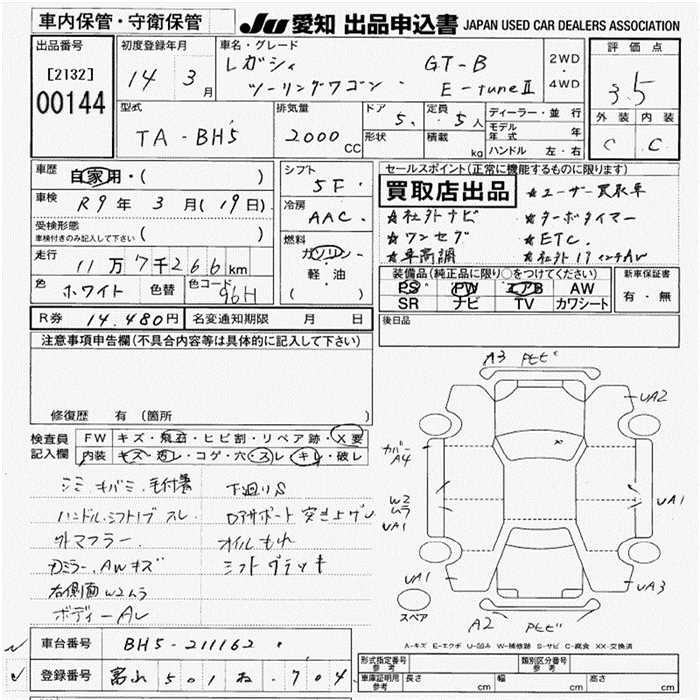 車内保管・守衛保管 JU 愛知 出品申込書 JAPAN USED CAR DEALERS ASSOCIATION
出品番号
[2132]
00144
初度登録年月
14 3月
車名・グレード
レガシィ
ツーリングワゴン
GT-B
E-tuneⅡ
2WD
・
4WD
評価点
3.5
外装 内装
C C
型式
TA-BH5
排気量
2000 CC
ドア 5
形状
定員 5人
積載 kg
ディーラー・並行
モデル年式 年
ハンドル 左・右
車歴 自家用・( )
車検 R9年 3月(19日)
受検形態
車検付きのみ記入して下さい ( )
走行 11万7千266km
色 ホワイト 色替 色コード 96H
シフト
5F
冷房
AAC
燃料
ガソリン
軽・油
( )
セールスポイント(正常に機能するものに限ります)
買取店出品 ★ユーザー買取車
★社外ナビ ★ターボタイマー
★ワンセグ ★ETC
★車高調 ★社外17インチAW
装備品(純正品に限り○をつけてください)
PS PW エアB AW
SR ナビ TV カワシート
新車保証書
有・無
R券 14,480円 名変通知期限 月 日
後日品
注意事項申告欄(不具合内容等は具体的に記入して下さい)
修復歴 有 (箇所 )
検査員
記入欄
FW キズ・飛石・ヒビ割・リペア跡・X要
内装 キズ・汚レ・コゲ・穴・スレ・キレ・破レ
シミ キバミ 毛付着 下廻りS
ハンドル、シフトノブ スレ
外マフラー オイルもれ
ミラー、AWキズ
右側面W2ムラ
ボディーAレ
A3 トビ
UA2
カバーA4
W2
ムラ
UA1
UA1
UA1
UA3
A2 トビ
スペア
A-キズ E-エクボ U-凹み W-補修跡 S-サビ C-腐食 XX-交換済
車台番号 BH5-211162
登録番号 富山 501 ね ・704
形式指定番号
参考
類別区分番号
参考
車庫証明用
参考
長さ cm
幅 cm
高さ cm